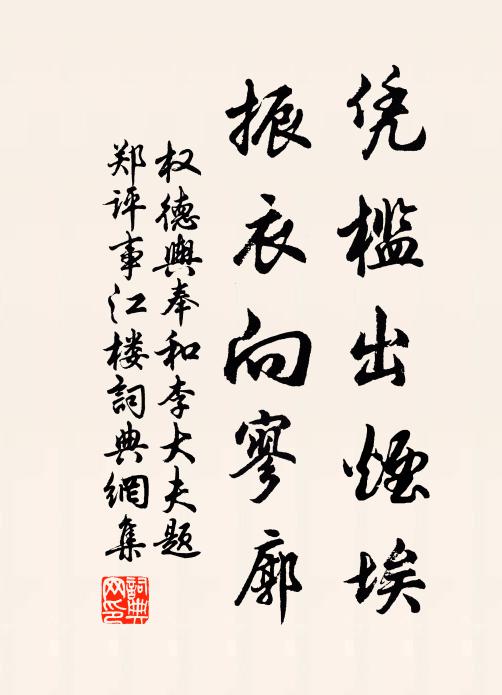 凭槛出烟埃
振衣向寥廓
权德舆奉和李大夫题
郑评事江楼詞典網集
詞典网印